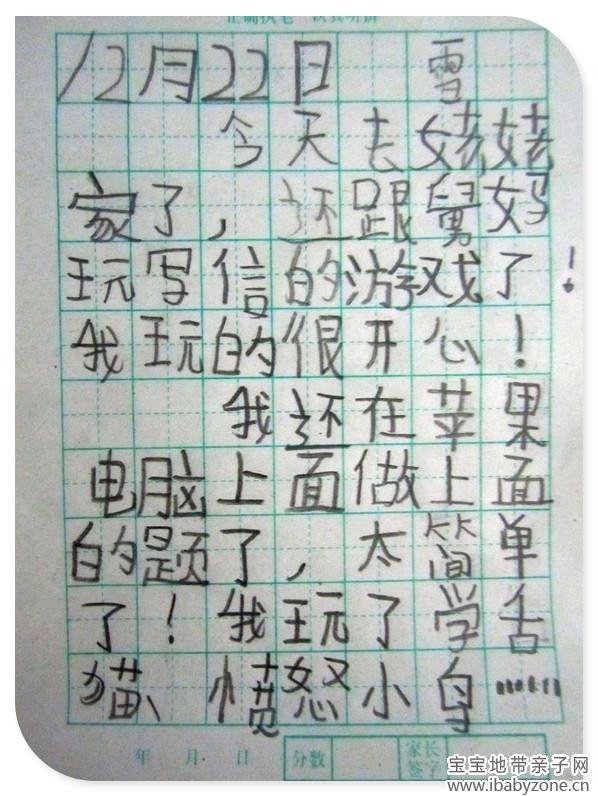 12月22日 雪
今天去姥姥
家了，还跟舅妈
玩写信的游戏了！
我玩的很开心！
我还在苹果
电脑上面做上面
的题了，太简单
了！我玩了学舌
猫、愤怒小鸟……
年 月 日 分数 家长签字
宝宝地带亲子网
www.ibabyzone.cn